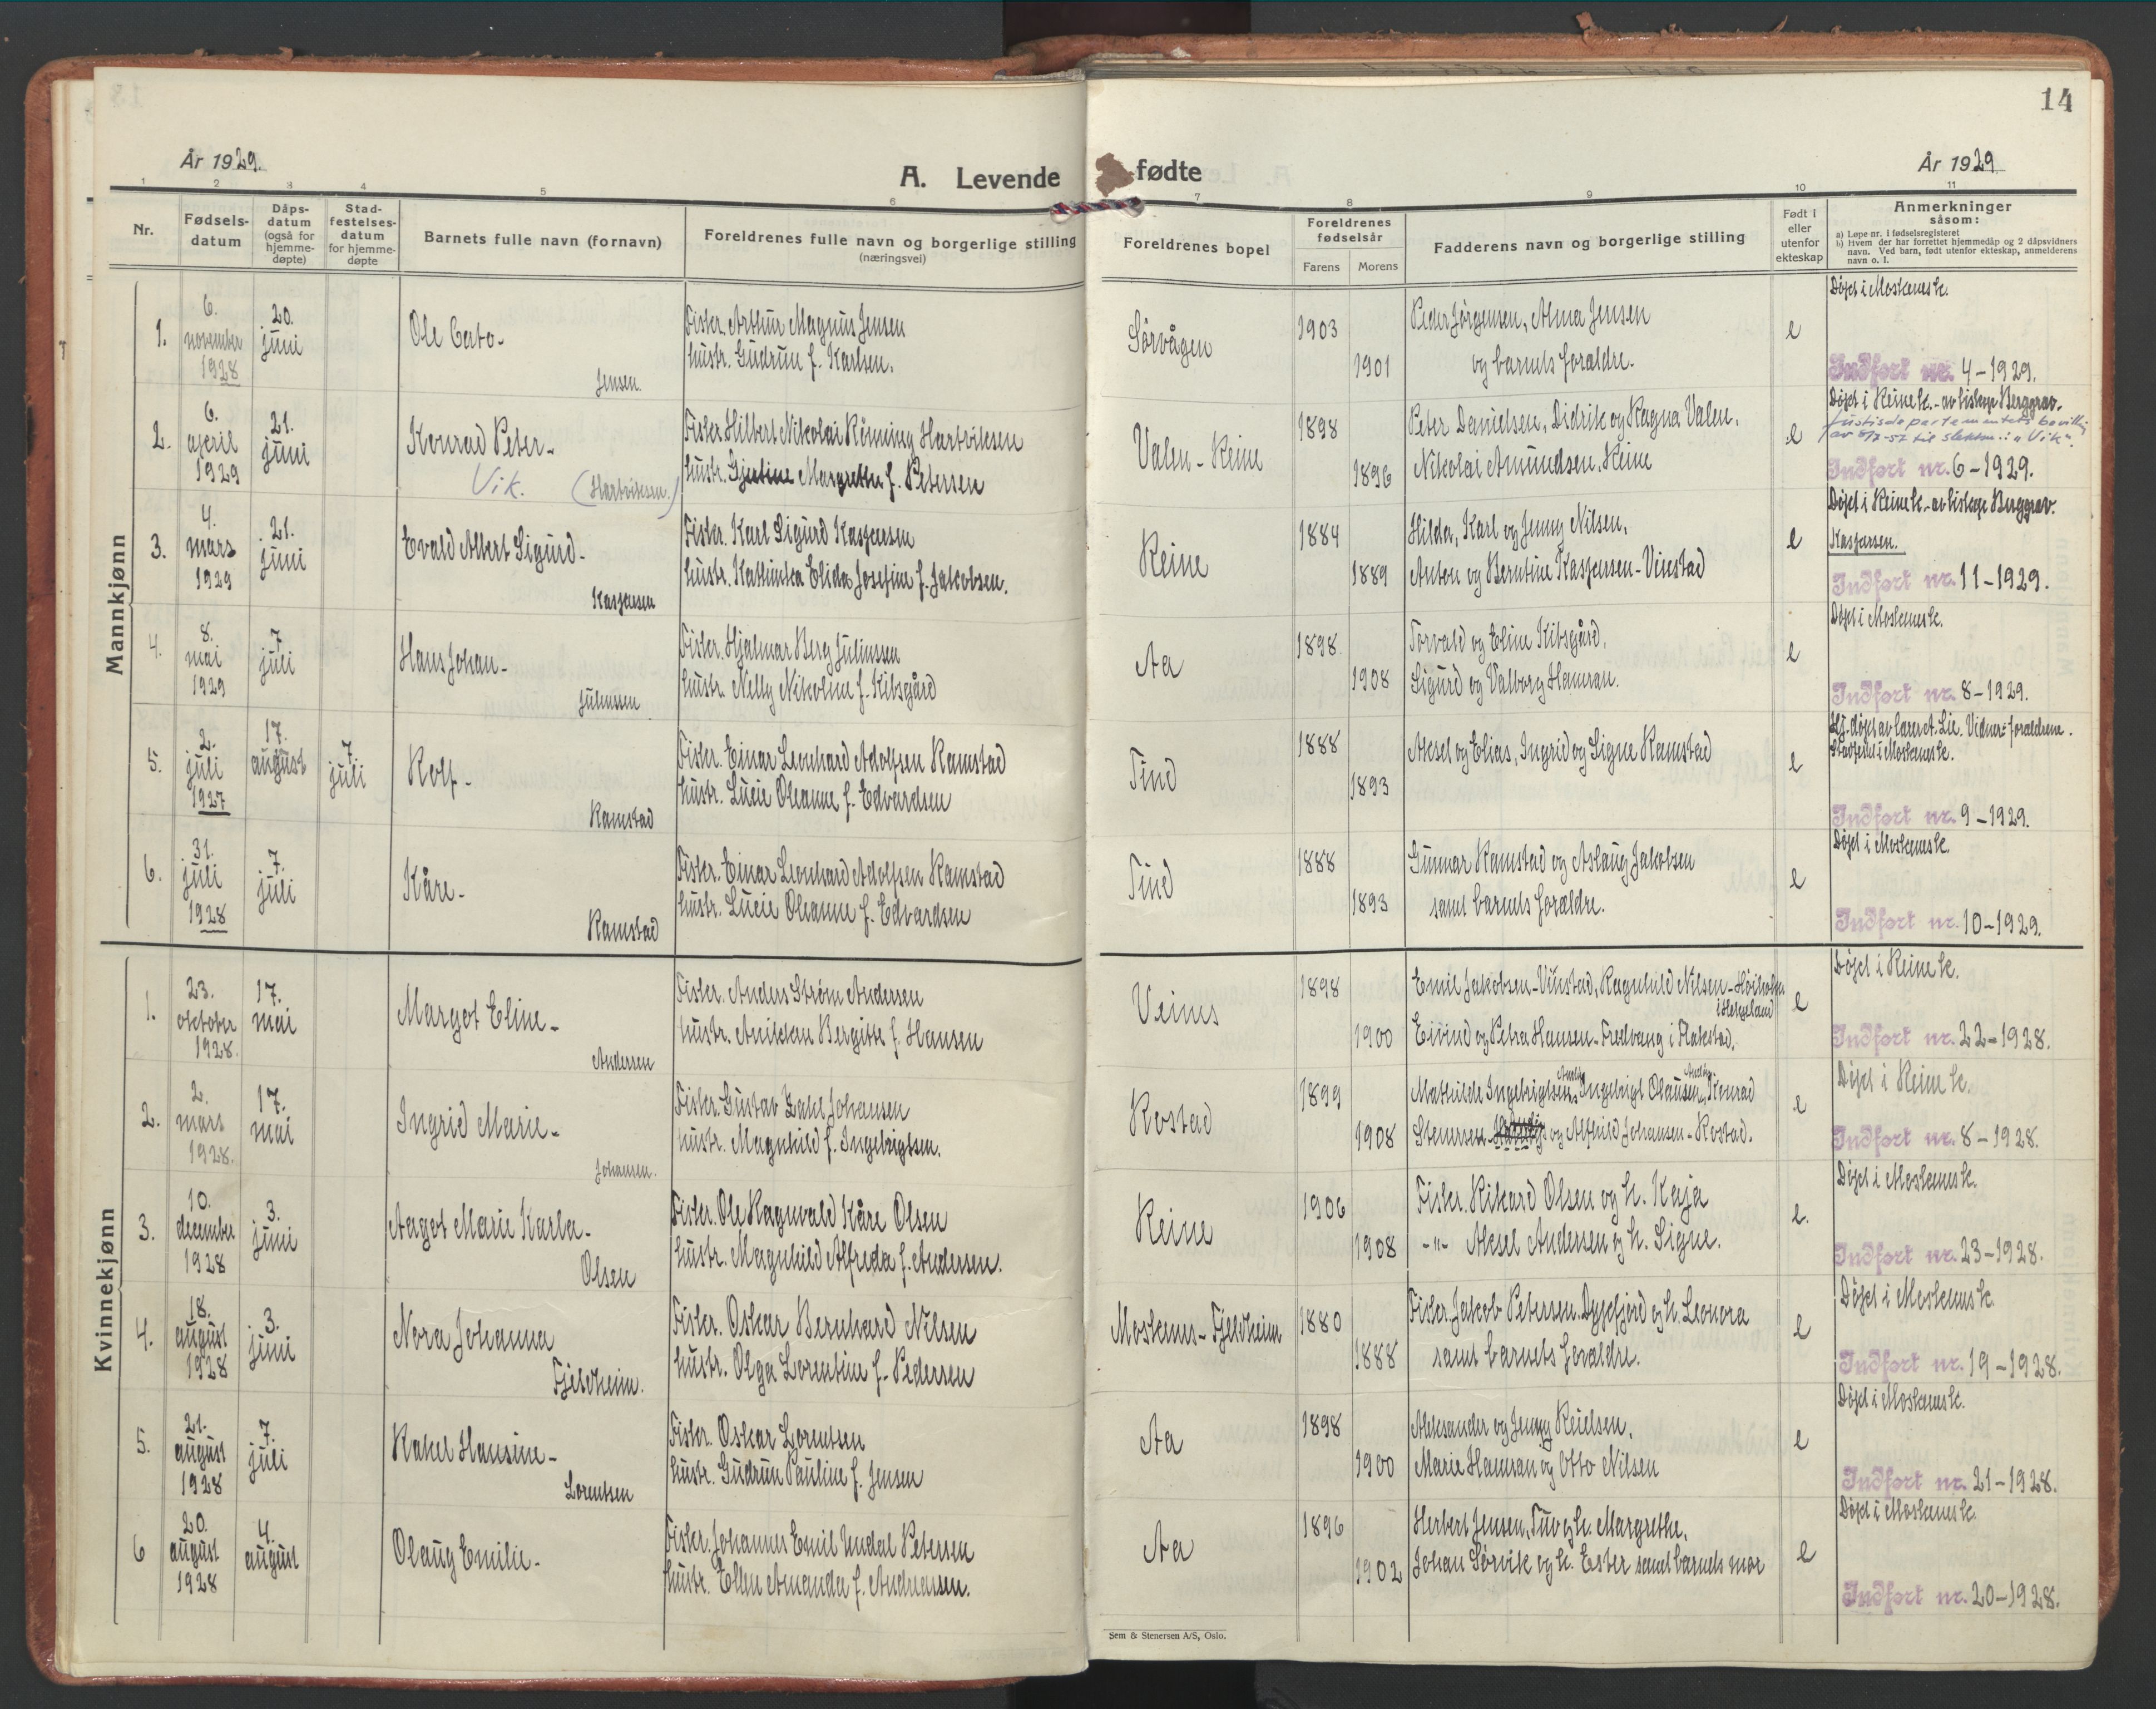 14
År 1929.
A. Levende fødte
År 1929
1 2 3 4 5 6 7 8 9 10 11
Nr.
Fødsels-
datum
Dåps-
datum
(også for
hjemme-
døpte)
Stad-
festelses-
datum
for hjemme-
døpte
Barnets fulle navn (fornavn)
Foreldrenes fulle navn og borgerlige stilling
(næringsvei)
Foreldrenes bopel
Foreldrenes
fødselsår
Farens Morens
Fadderens navn og borgerlige stilling
Født i
eller
utenfor
ekteskap
Anmerkninger
såsom:
a) Løpe nr. i fødselsregisteret
b) Hvem der har forrettet hjemmedåp og 2 dåpsvidners
navn. Ved barn, født utenfor ekteskap, anmelderens
navn o. l.
Mannkjønn
1.
6.
november
1928
20.
juni
Ole Cato-
Jensen.
Fisker. Arthur Magnus Jensen
hustr. Gudrun f. Karlsen.
Sørvågen
1903
1901
Peder Jørgensen, Alma Jensen
og barnets foreldre.
e
Døpt i Moskenesk.
Indført nr. 4-1929.
2.
6.
april
1929
21.
juni
Konrad Peter-
Vik. (Hartviksen.)
Fisker Hilbert Nikolai Rønning Hartviksen
hustr. Gjertine Margrethe f. Petersen
Valen-Reine
1898
1896
Peter Danielsen, Didrik og Ragna Valen,
Nikolai Amundsen, Reine
e
Døpt i Reine k.- av biskop Berggrav.
Justisdepartementets bevilling
til slektsn.: "Vik".
Indført nr. 6-1929.
3.
4.
mars
1929
21.
juni
Evald Albert Sigurd-
Kaspersen
Fisker. Karl Sigurd Kaspersen
hustr. Kathinka Elida Josefine f. Jakobsen.
Reine
1884
1889
Hilda, Karl og Jenny Nilsen,
Anton og Berntine Kaspersen-Vinstad
e
Døpt i Reine k.- av biskop Berggrav.
Kaspersen.
Indført nr. 11-1929.
4.
8.
mai
1929
7
juli
Hans Johan-
Juliussen
Fisker. Hjalmar Berg Juliussen
hustr. Nelly Nikoline f. Kibsgård
Aa
1898.
1908
Torvald og Eline Kibsgård,
Sigurd og Valborg Hamran.
e
Døpt i Moskenesk.
Indført nr. 8-1929.
5.
2.
juli
1927
17.
august
7.
juli
Rolf-
Ramstad
Fisker. Einar Leonhard Adolfsen Ramstad
hustr. Lucie Oleanne f. Edvardsen
Tind
1888
1893
Aksel og Elias, Ingrid og Signe Ramstad
e
Hj. døpt av lærer Lie. Vidner: foreldrene.
Stadfestet i Moskenesk.
Indført nr. 9-1929.
6.
31.
juli
1928
7.
juli
Kåre-
Ramstad
Fisker. Einar Leonhard Adolfsen Ramstad
hustr. Lucie Oleanne f. Edvardsen
Tind
1888
1893
Gunnar Ramstad og Aslaug Jakobsen
samt barnets foreldre.
e
Døpt i Moskenesk.
Indført nr. 10-1929.
Kvinnekjønn
1.
23.
oktober
1928.
17.
mai
Margot Eline-
Andersen
Fisker. Anders Strøm Andersen
hustr. Annikken Bergitte f. Hansen
Veines
1898
1900
Emil Jakobsen-Vinstad, Ragnhild Nilsen-Høiholm
i Helgeland
Eivind og Petra Hansen-Fredvang i Flakstad.
e
Døpt i Reine k.
Indført nr. 22-1928.
2.
2.
mars
1928.
17.
mai
Ingrid Marie-
Johansen.
Fisker. Gustav Zakel Johansen
hustr. Magnhild f. Ingebrigtsen.
Rostad
1899
1908
Mathilde Ingebrigtsen, Ingebrigt Olausen, Konrad
Stenersen og Alfhild Johansen-Rostad.
e
Døpt i Reine k.
Indført nr. 8-1928.
3.
10.
december
1928
3.
juni
Aagot Marie Karla-
Olsen
Fisker. Ole Ragnvald Kåre Olsen
hustr. Magnhild Alfreda f. Andersen.
Reine
1906
1908
Fisker. Rikard Olsen og h. Kaja
-"- Aksel Andersen og h. Signe.
e.
Døpt i Moskenesk.
Indført nr. 23-1928.
4.
18.
august
1928
3.
juni
Nora Johanna
Fjeldheim.
Fisker. Oskar Bernhard Nilsen
hustr. Olga Lorentine f. Pedersen
Moskenes-Fjeldheim
1880
1888
Fisker Jakob Petersen. Dypfjord og h. Leonora
samt barnets foreldre.
e
Døpt i Moskenesk.
Indført nr. 19-1928.
5.
21.
august
1928
7.
juli
Rakel Hansine-
Lorentsen
Fisker. Oskar Lorentsen
hustr. Gudrun Pauline f. Jensen
Aa
1898
1900
Aleksander og Jenny Reielsen,
Marie Hamran og Otto Nilsen
e
Døpt i Moskenesk.
Indført nr. 21-1928.
6
20.
august
1928
4.
august
Olaug Emilie-
Fisker. Johannes Emil Undal Petersen
hustr. Ellen Amanda f. Andreassen.
Aa
1896
1902
Herbert Jensen, Tuv og h. Margrethe,
Johan Sørvik og h. Ester samt barnets mor
e
Døpt i Moskenesk.
Indført nr. 20-1928.
Sem & Stenersen A/S, Oslo.